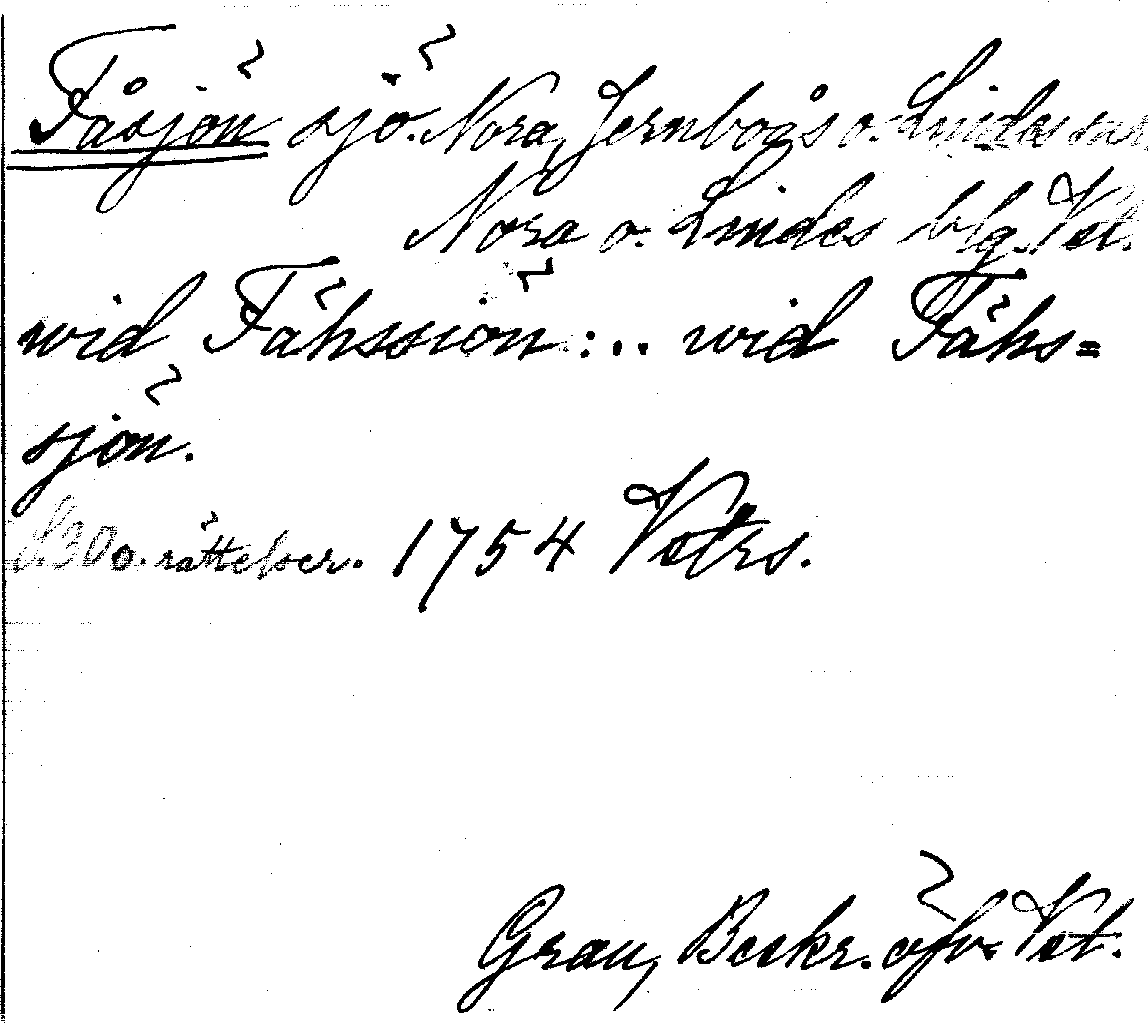 Fåsjön sjö. Nora, Jernboås o. Lindes snr
Nora o. Lindes blg. Vst.
wid Fåhssiön: .. wid Fåhs=
sjön.
s. 30 o. rättelser. 1754 Vstrs.
Grau, Beskr. öfv. Vst.